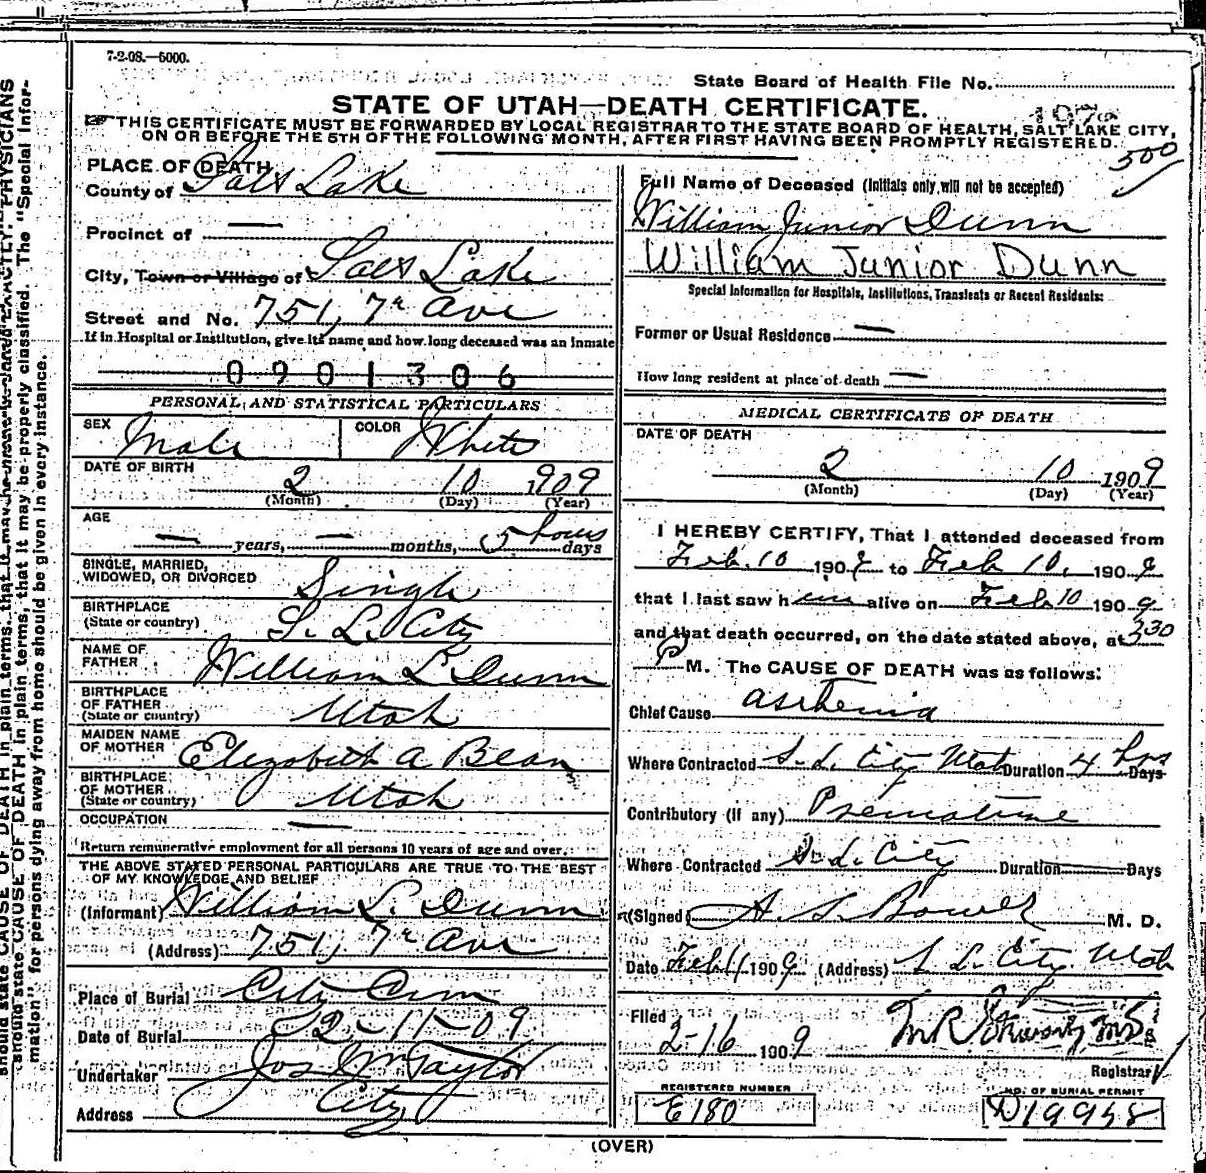 7-2-08.—5000.
State Board of Health File No.
STATE OF UTAH—DEATH CERTIFICATE.
THIS CERTIFICATE MUST BE FORWARDED BY LOCAL REGISTRAR TO THE STATE BOARD OF HEALTH, SALT LAKE CITY,
ON OR BEFORE THE 5TH OF THE FOLLOWING MONTH, AFTER FIRST HAVING BEEN PROMPTLY REGISTERED.
500
PLACE OF DEATH
County of Salt Lake
Precinct of —
City, Town or Village of Salt Lake
Street and No. 751, 7th Ave
If in Hospital or Institution, give its name and how long deceased was an inmate
0901306
PERSONAL AND STATISTICAL PARTICULARS
SEX Male COLOR White
DATE OF BIRTH
2 10 1909
(Month) (Day) (Year)
AGE
— years, — months, 5 hours days
SINGLE, MARRIED,
WIDOWED, OR DIVORCED Single
BIRTHPLACE
(State or country) S. L. City
NAME OF
FATHER William L. Dunn
BIRTHPLACE
OF FATHER
(State or country) Utah
MAIDEN NAME
OF MOTHER Elizabeth A Bean
BIRTHPLACE
OF MOTHER
(State or country) Utah
OCCUPATION —
Return remunerative employment for all persons 10 years of age and over.
THE ABOVE STATED PERSONAL PARTICULARS ARE TRUE TO THE BEST
OF MY KNOWLEDGE AND BELIEF
(Informant) William L. Dunn
(Address) 751, 7th Ave
Place of Burial City Cem
Date of Burial 2-11-09
Undertaker Jos Wm Taylor
Address City
Full Name of Deceased (Initials only will not be accepted)
William Junior Dunn
William Junior Dunn
Special Information for Hospitals, Institutions, Transients or Recent Residents:
Former or Usual Residence —
How long resident at place of death —
MEDICAL CERTIFICATE OF DEATH
DATE OF DEATH
2 10 1909
(Month) (Day) (Year)
I HEREBY CERTIFY, That I attended deceased from
Feb. 10 1909 to Feb 10, 1909
that I last saw him alive on Feb 10 1909
and that death occurred, on the date stated above, at 3 30
P M. The CAUSE OF DEATH was as follows:
Chief Cause asthenia
Where Contracted S. L. City Utah Duration 4 hrs Days
Contributory (if any) Premature
Where Contracted S. L. City Duration Days
(Signed) M. D.
Date Feb 11 1909 (Address) S L. City Utah
Filed
2-16 1909
Registrar
REGISTERED NUMBER
E180
NO. OF BURIAL PERMIT
D19958
(OVER)
should state CAUSE OF DEATH in plain terms, that it may be properly classified. The "Special Infor-
mation" for persons dying away from home should be given in every instance.